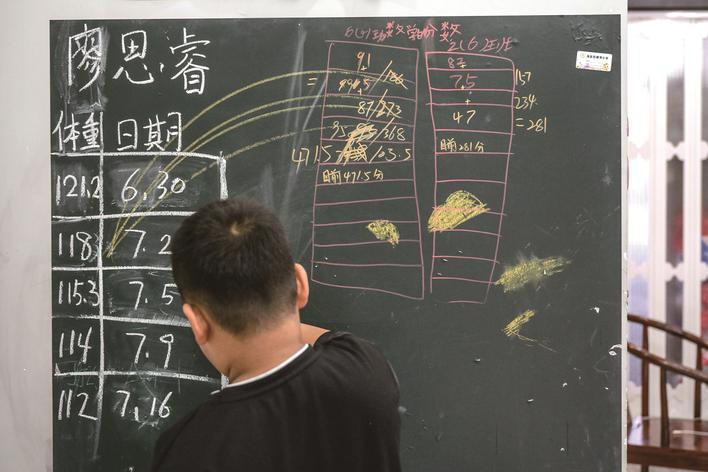 廖思睿
体重 日期
121.2 6.30
118 7.2
115.3 7.5
114 7.9
112 7.16
数学分数
91
=
87/273
95 /368
471.5 /03.5
目前471.5分
2(6)班
87
75
+
47
目前281分
157
234
=281